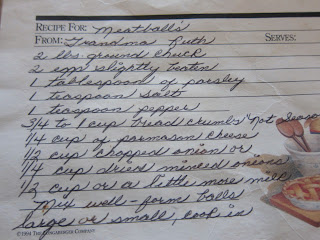 RECIPE FOR: Meatball's
FROM: Grandma Ruth SERVES:
2 lbs. ground chuck
2 eggs slightly beaten
1 tablespoon of parsley
1 teaspoon salt
1 teaspoon pepper
3/4 to 1 cup bread crumbs "Not Season
1/4 cup of parmason cheese
1/2 cup chopped onion or
1/4 cup dried minced onions
1/2 cup or a little more milk
Mix well - form balls
large or small, cook in
COMPANY